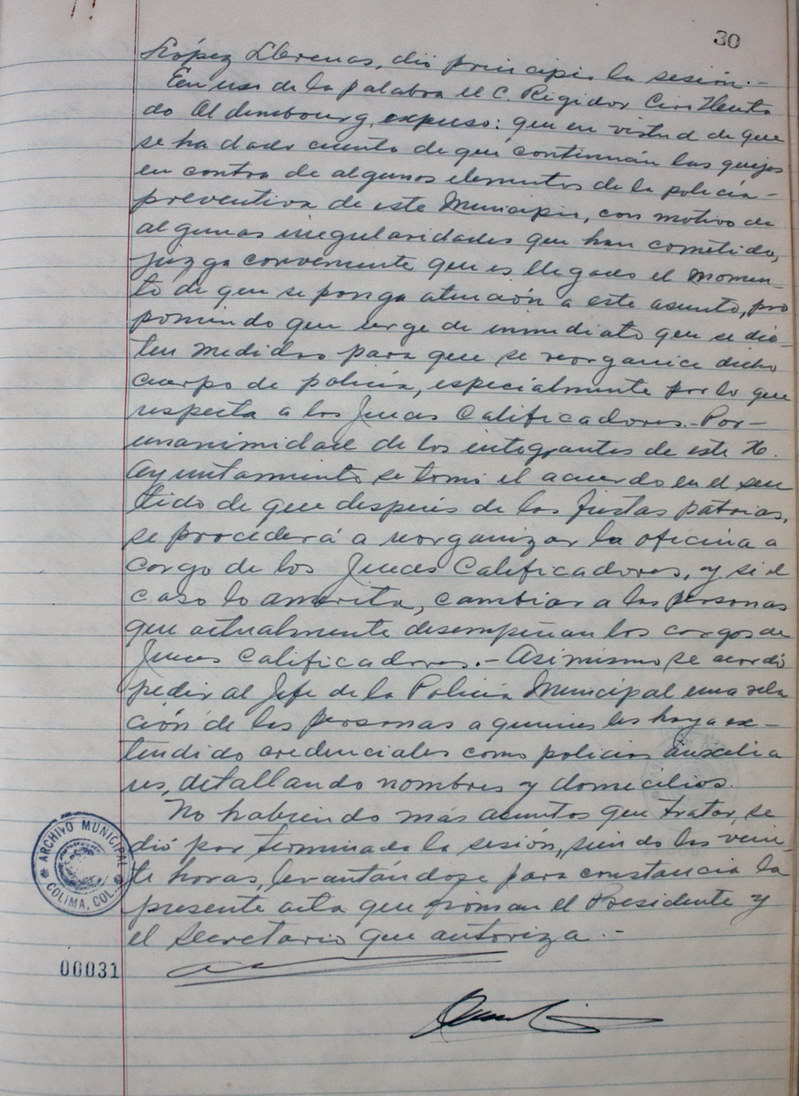 30
López Llerenas, dió principio la sesión.-
En uso de la palabra el C. Regidor Ciro Hurta
do Aldembourg, expuso: que en virtud de que
se ha dado cuenta de que continúan las quejas
en contra de algunos elementos de la policía-
preventiva de este Municipio, con motivo de
algunas irregularidades que han cometido,
juzga conveniente que es llegado el momen-
to de que se ponga atención a este asunto, pro
poniendo que urge de inmediato que se dic-
ten medidas para que se reorganice dicho
cuerpo de policía, especialmente por lo que
respecta a los Jueces Calificadores.- Por-
unanimidad de los integrantes de este H.
Ayuntamiento se tomó el acuerdo en el sen
tido de que después de las fiestas patrias,
se procederá a reorganizar la oficina a
cargo de los Jueces Calificadores, y si el
caso lo amerita, cambiar a las personas
que actualmente desempeñan los cargos de
Jueces Calificadores.- Asimismo se acordó
pedir al Jefe de la Policía Municipal una rela
ción de las personas a quienes les haya ex-
tendido credenciales como policías auxilia
res, detallando nombres y domicilios.
No habiendo más asuntos que tratar, se
dió por terminada la sesión, siendo las vein-
te horas, levantándose para constancia la
presente acta que firman el Presidente y
el Secretario que autoriza.-
ARCHIVO MUNICIPAL
COLIMA, COL.
00031